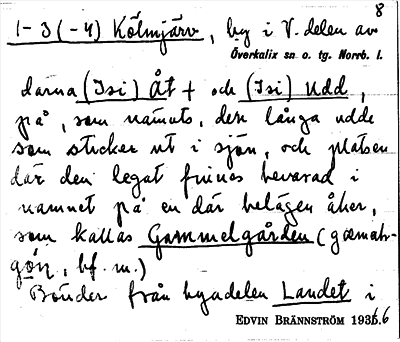 8
1-3 (-4) Kölmjärv, by i V. delen av
Överkalix sn o. tg. Norrb. l.
darna (Isi) Åt + och (Isi) Udd,
på, som nämnts, den långa udde
som sticker ut i sjön, och platsen
där den legat finnes bevarad i
namnet på en där belägen åker,
som kallas Gammelgården (
bf. m.)
Bönder från byadelen Landet i
EDVIN BRÄNNSTRÖM 1936.6